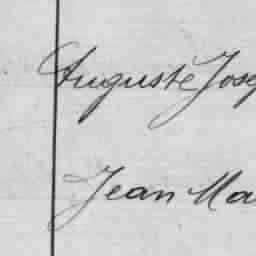 Auguste Jose
Jean Ma